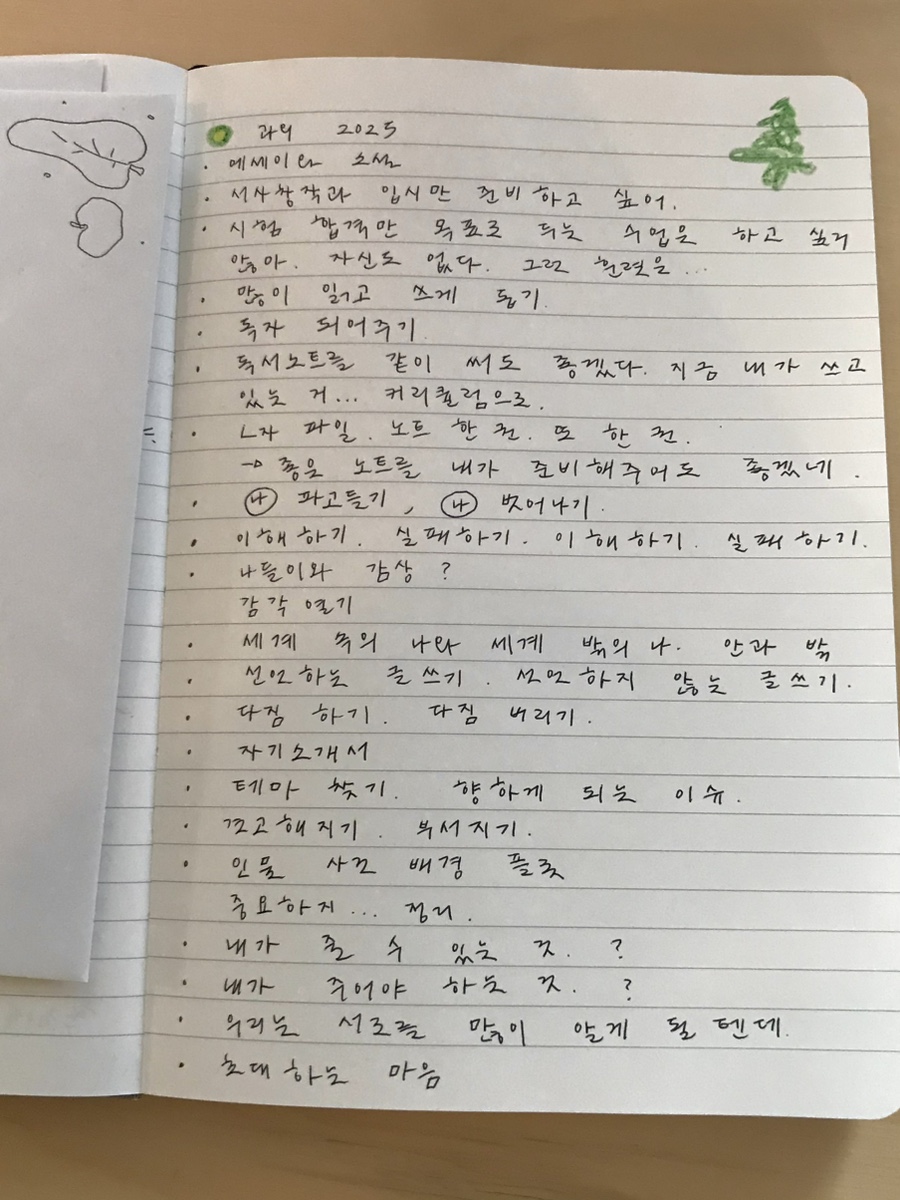 과외 2025
· 에세이와 소설
· 서사창작과 입시만 준비하고 싶어.
· 시험 합격만 목표로 되는 수업은 하고 싶지
않아. 자신도 없다. 그런 훈련은...
· 많이 읽고 쓰게 돕기.
· 독자 되어주기
· 독서노트를 같이 써도 좋겠다. 지금 내가 쓰고
있는 거... 커리큘럼으로.
· ㄴ자 파일. 노트 한 권. 또 한 권.
→ 좋은 노트를 내가 준비해주어도 좋겠네.
· 나 파고들기, 나 벗어나기.
· 이해하기. 실패하기. 이해하기. 실패하기.
· 나들이와 감상?
감각 열기
· 세계 속의 나와 세계 밖의 나. 안과 밖
· 선언하는 글쓰기. 선언하지 않는 글쓰기.
· 다짐 하기. 다짐 버리기.
· 자기소개서
· 테마 찾기. 향하게 되는 이슈.
· 견고해지기. 부서지기.
· 인물 사건 배경 플롯
중요하지... 정리.
· 내가 줄 수 있는 것. ?
· 내가 주어야 하는 것. ?
· 우리는 서로를 많이 알게 될 텐데.
· 초대하는 마음